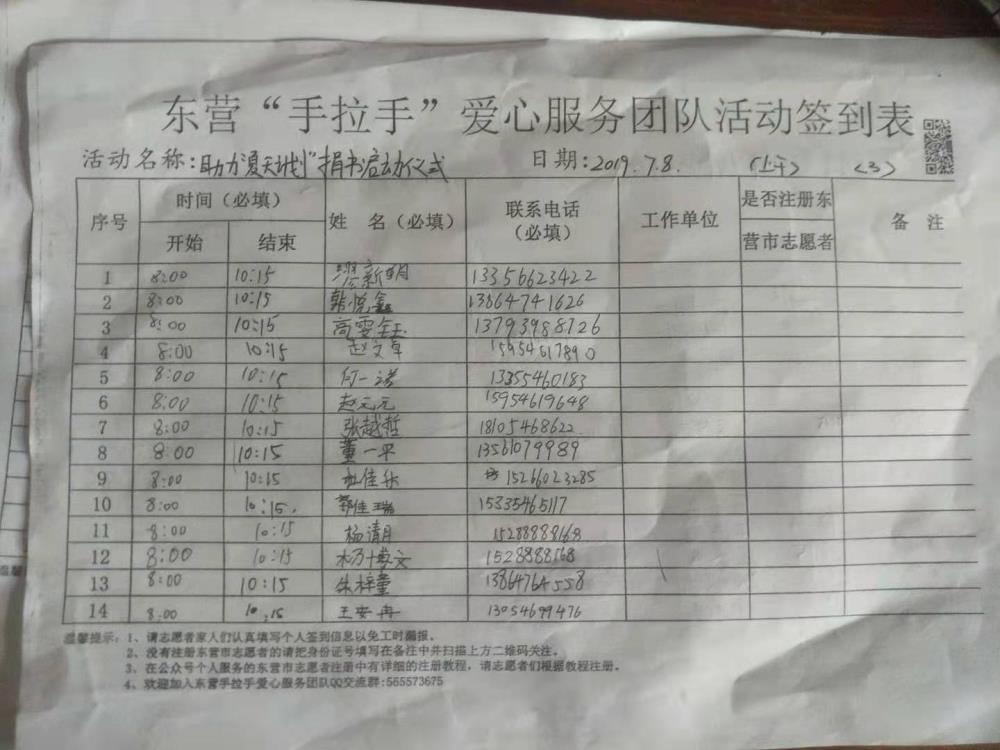 东营“手拉手”爱心服务团队活动签到表
活动名称:助力“夏天计划”捐书启动仪式 日期:2019.7.8. (上午) <3>
序号 时间(必填) 姓 名(必填) 联系电话(必填) 工作单位 是否注册东营市志愿者 备 注
开始 结束
1 8:00 10:15 新明 13356623422
2 8:00 10:15 韩悦鑫 13864741626
3 8:00 10:15 高雯钰 13793988726
4 8:00 10:15 赵文卓 15954617890
5 8:00 10:15 何一诺 13355460183
6 8:00 10:15 赵元元 13954619648
7 8:00 10:15 张越哲 18105468622
8 8:00 10:15 董一平 13561079989
9 8:00 10:15 佳乐 15266023285
10 8:00 10:15. 郭佳瑞 15335465117
11 8:00 10:15 杨清月 15288888168
12 8:00 10:15 杨博文 1528888168
13 8:00 10:15 朱梓童 13864764558
14 8:00 10:15 王安冉 13054699476
温馨提示:1、请志愿者家人们认真填写个人签到信息以免工时漏报。
2、没有注册东营市志愿者的请把身份证号填写在备注中并扫描上方二维码关注。
3、在公众号个人服务的东营市志愿者注册中有详细的注册教程,请志愿者们根据教程注册。
4、欢迎加入东营手拉手爱心服务团队QQ交流群:565573675